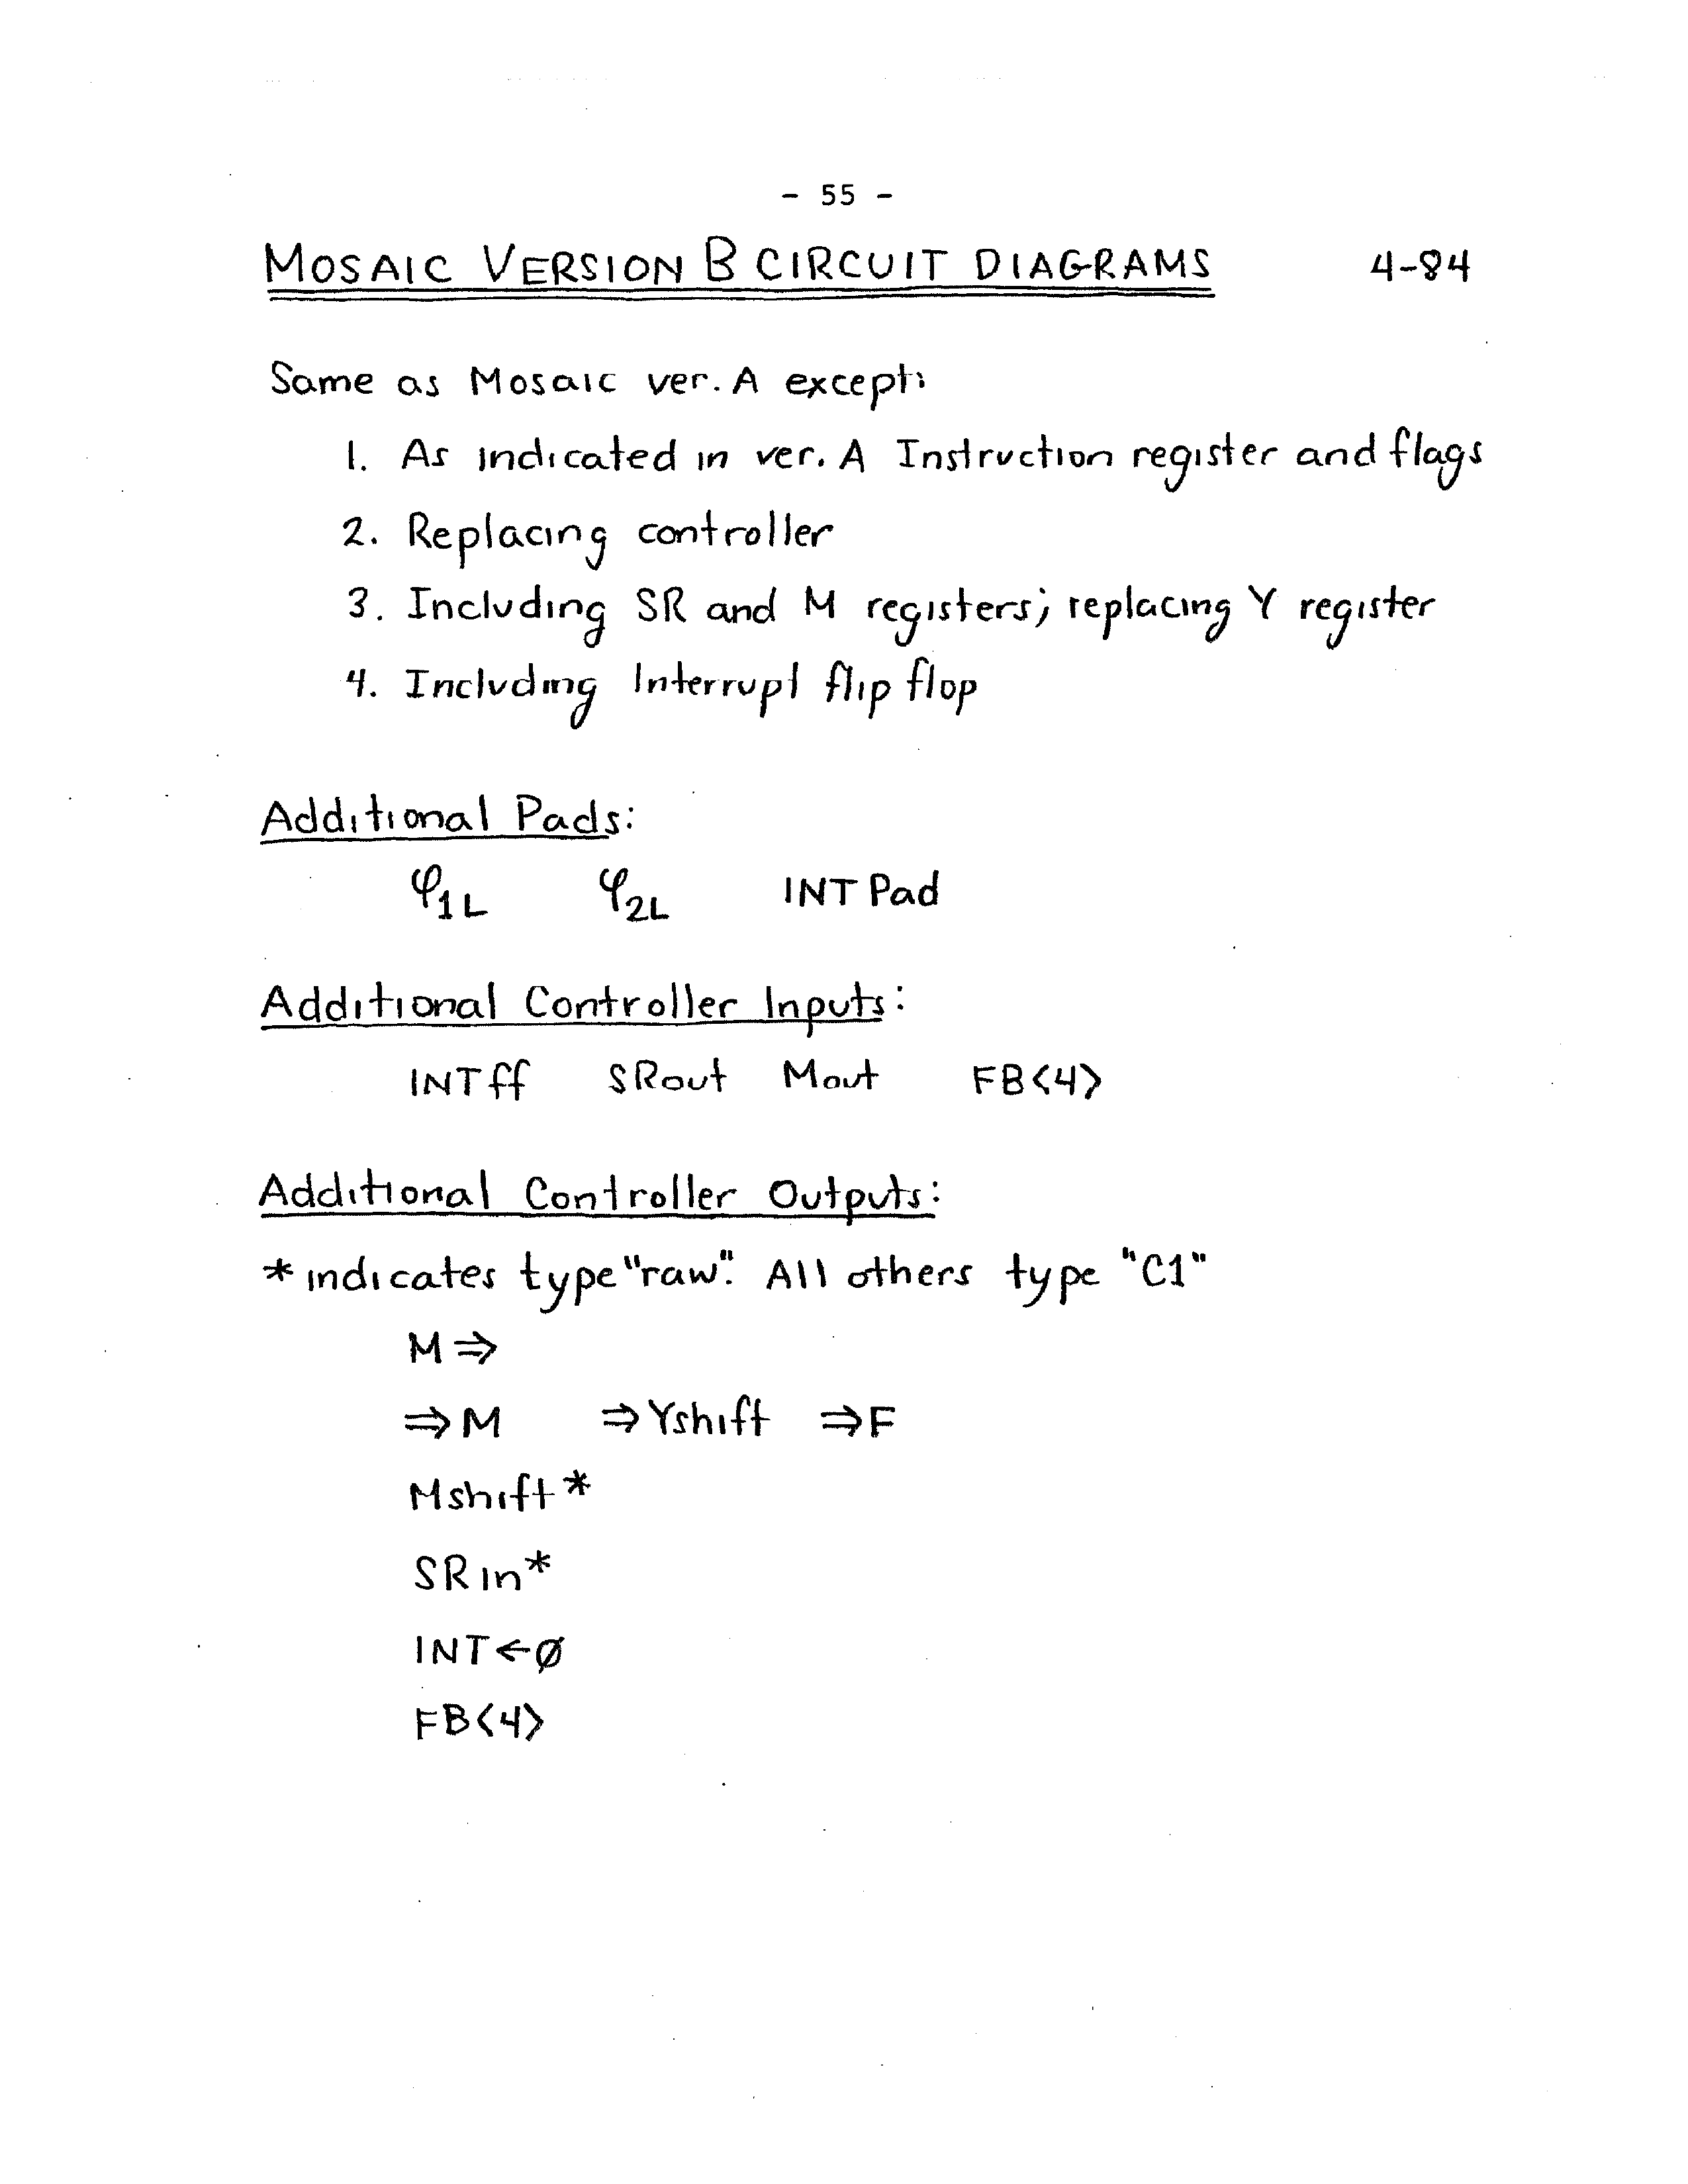 - 55 -
MOSAIC VERSION B CIRCUIT DIAGRAMS 4-84
Same as Mosaic ver. A except:
1. As indicated in ver. A Instruction register and flags
2. Replacing controller
3. Including SR and M registers; replacing Y register
4. Including Interrupt flip flop
Additional Pads:
φ1L φ2L INT Pad
Additional Controller Inputs:
INTff SRout Mout FB<4>
Additional Controller Outputs:
* indicates type "raw". All others type "C1"
M⇒
⇒M ⇒Yshift ⇒F
Mshift*
SRin*
INT←Ø
FB<4>